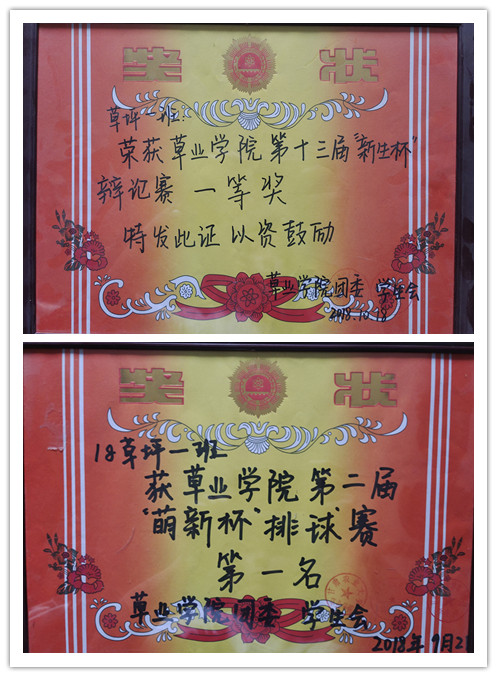 奖 状
草坪一班:
荣获草业学院第十三届"新生杯"
辩论赛 一等奖
特发此证 以资鼓励
草业学院团委 学生会
2018.10.18
奖 状
18草坪一班
获草业学院第二届
"萌新杯"排球赛
第一名
草业学院团委 学生会
2018年9月2